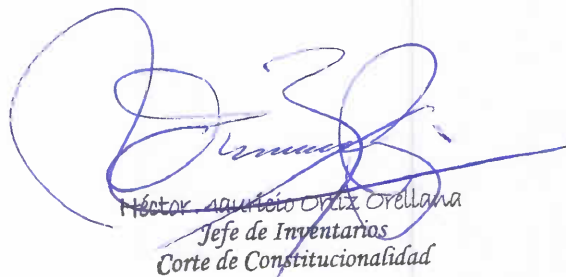 Héctor Mauricio Ortiz Orellana
Jefe de Inventarios
Corte de Constitucionalidad